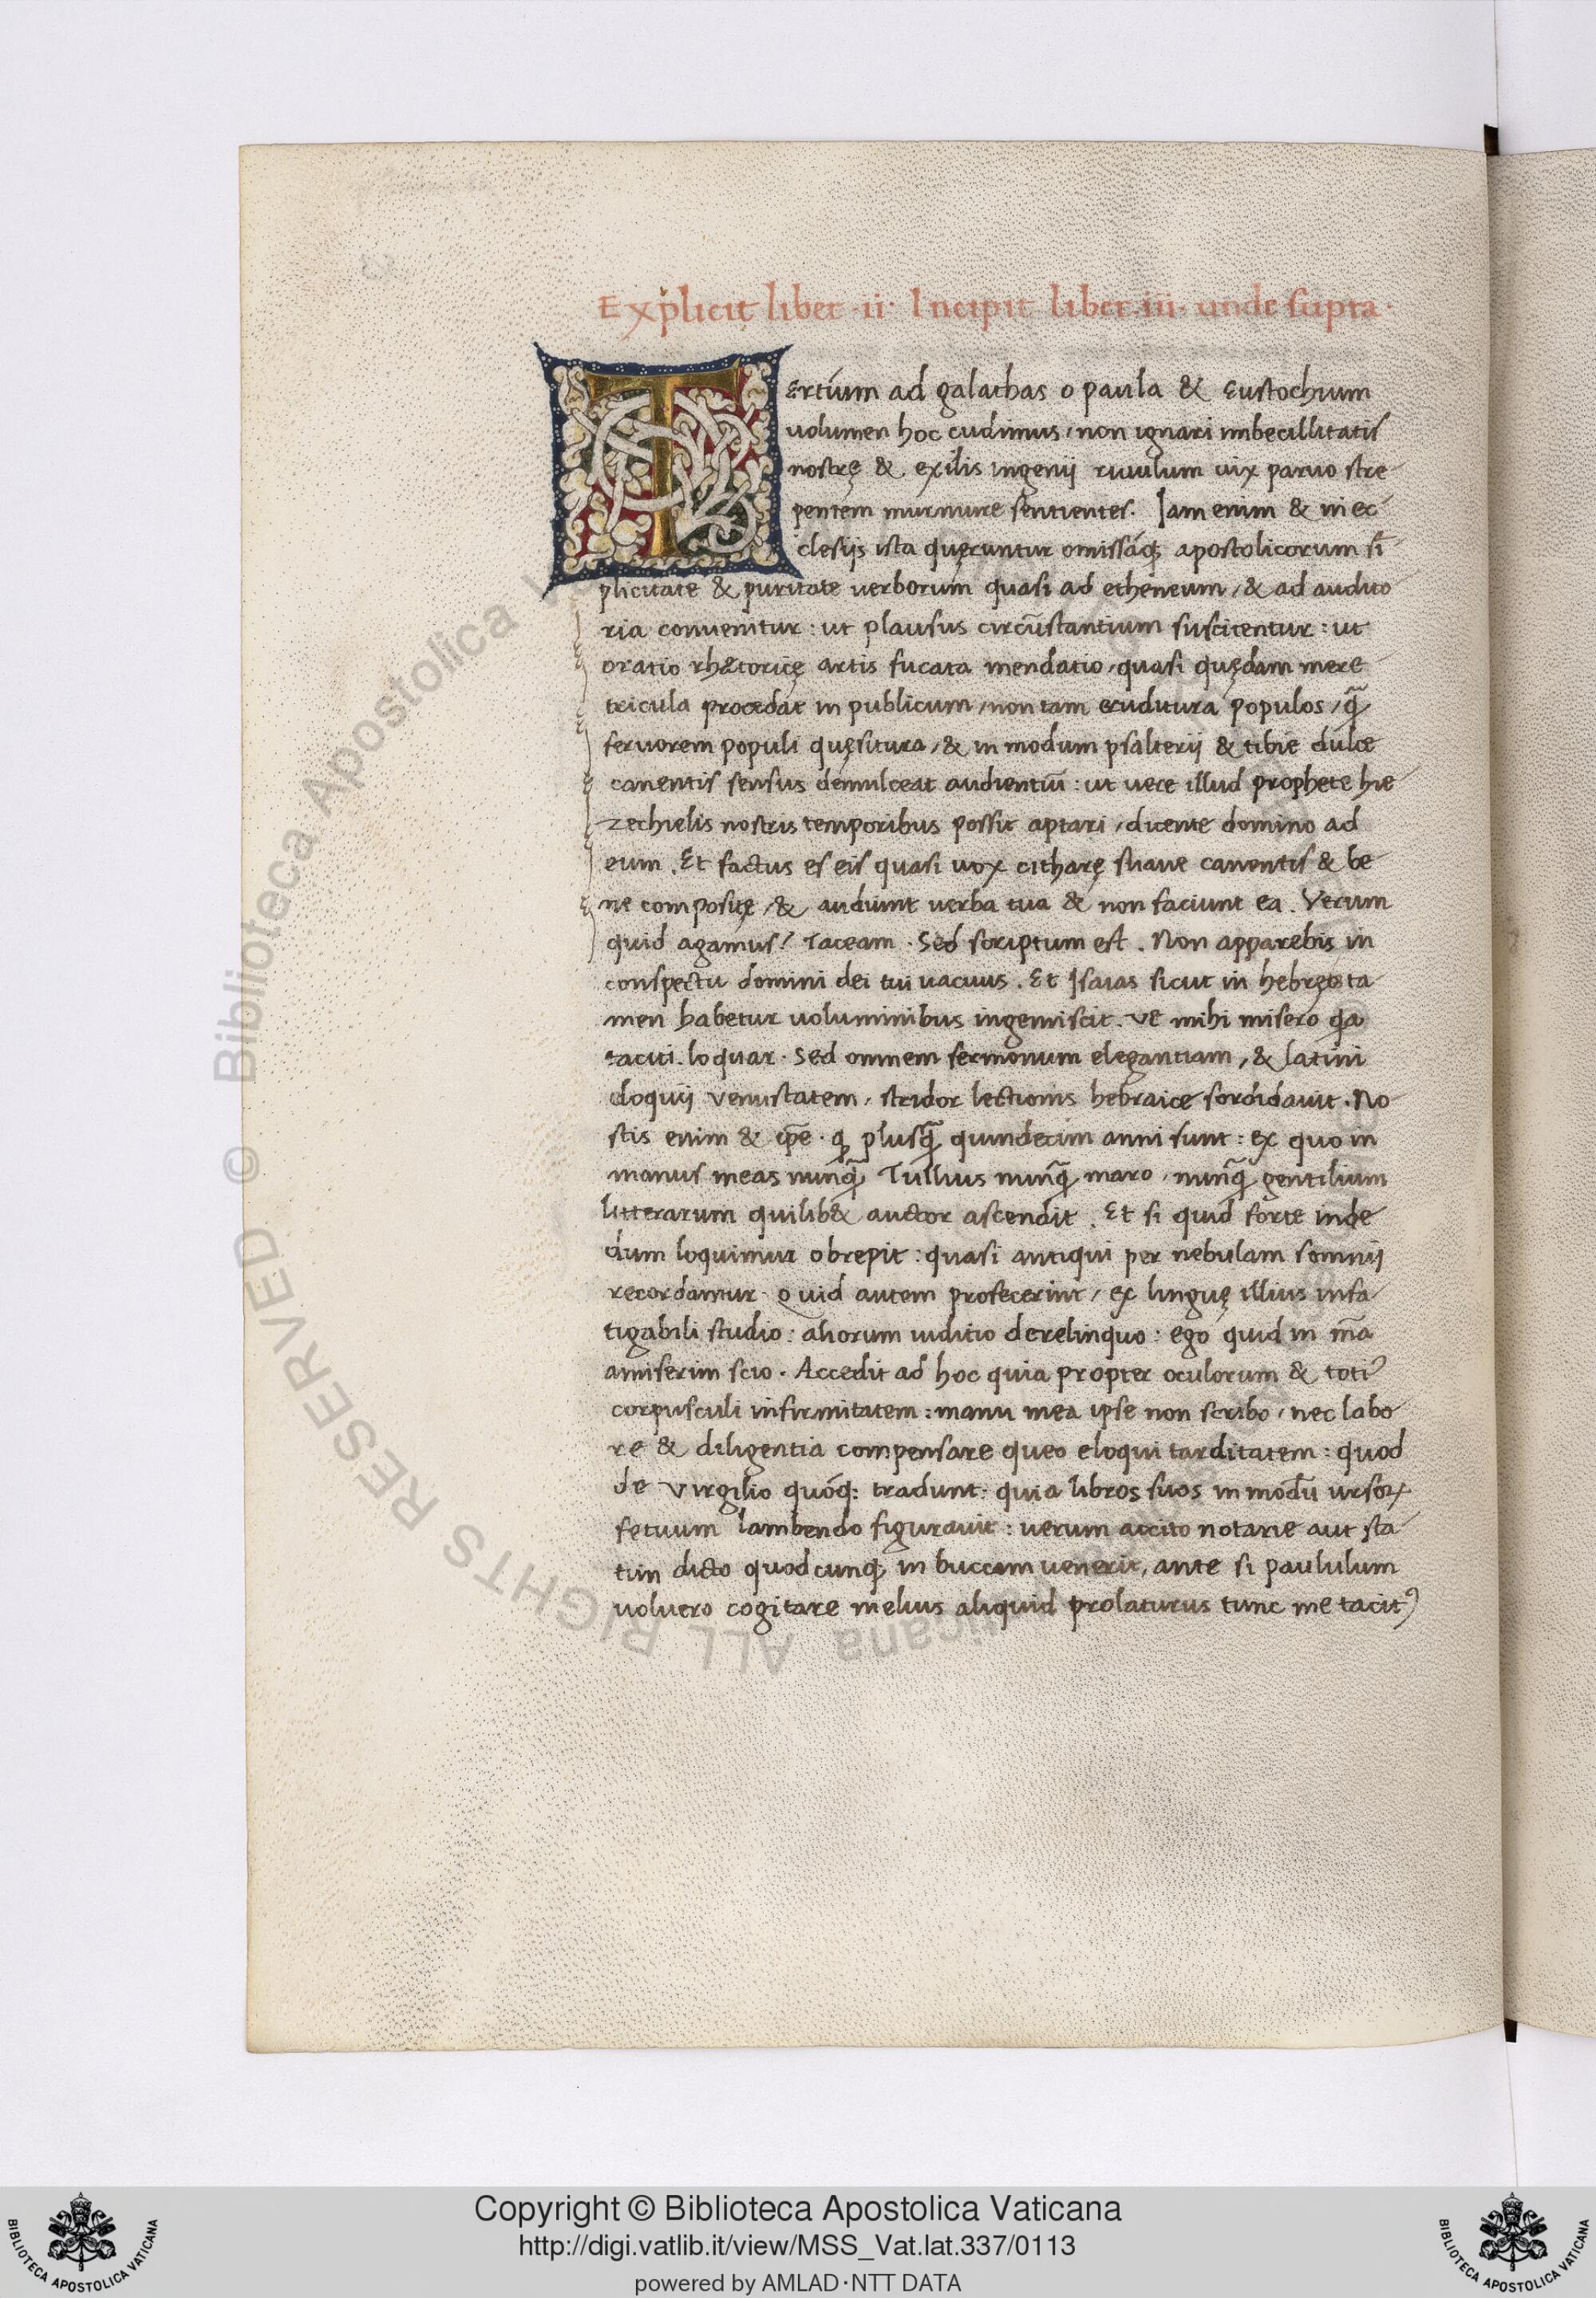 Explicit liber ·ii· Incipit liber ·iii· unde supra ·
Tertium ad galathas o paula & Eustochium
uolumen hoc cudimus, non ignari imbecillitatis
nostrę & exilis ingenij riuulum uix paruo stre
pentem murmure sentientes. Iam enim & in ec
clesijs ista quęruntur omissáq; apostolicorum si̅
plicitate & puritate uerborum quasi ad etheneum, & ad audito
ria conuenitur : ut plausus circu̅stantium suscitentur : ut
oratio rh&toricę artis fucata mendatio, quasi quędam mere
tricula procedat in publicum, non tam eruditura populos, q̅
feruorem populi quęsitura, & in modum psalterij & tibie dulce
canentis sensus demulceat audientiu̅ : ut uere illud prophete hie
zechielis nostris temporibus possit aptari, dicente domino ad
eum . Et factus es eis quasi uox citharę suaue canentis & be
ne compositę, & audiunt uerba tua & non faciunt ea . Verum
quid agamus? Taceam . Sed scriptum est . Non apparebis in
conspectu domini dei tui uacuus . Et Isaias sicut in hebręis ta
men habetur uoluminibus ingemiscit . Ve mihi misero qa
taciti. loquar · Sed omnem sermonum elegantiam, & latini
eloquij venustatem, stridor lectionis hebraice sordidauit . No
stis enim & ip̅e · q̅ plusq̅ quindecim anni sunt : ex quo in
manus meas nunq̅ Tullius nunq̅ maro, nunq̅ gentilium
litterarum quilib& auctor ascendit . Et si quid forte inde
dum loquimur obrepit : quasi antiqui per nebulam somnij
recordamur · Quid autem profecerint, ex linguę illius infa
tigabili studio : aliorum iuditio derelinquo : ego quid in m̅a
amiserim scio . Accedit ad hoc quia propter oculorum & toti⁹
corpusculi infirmitatem : manu mea ipse non scribo, nec labo
re & diligentia compensare queo eloqui tarditatem : quod
de Virgilio quóq; tradunt : quia libros suos in modu̅ ursoꝝ
fetuum lambendo figurauit : uerum accito notarie aut sta
tim dicto quodcunq; in buccam uenerit, ante si paululum
uoluero cogitare melius aliquid prolaturus tunc me tacit⁹
© Biblioteca Apostolica Vaticana ALL RIGHTS RESERVED
Copyright © Biblioteca Apostolica Vaticana
http://digi.vatlib.it/view/MSS_Vat.lat.337/0113
powered by AMLAD·NTT DATA
BIBLIOTECA APOSTOLICA VATICANA
BIBLIOTECA APOSTOLICA VATICANA